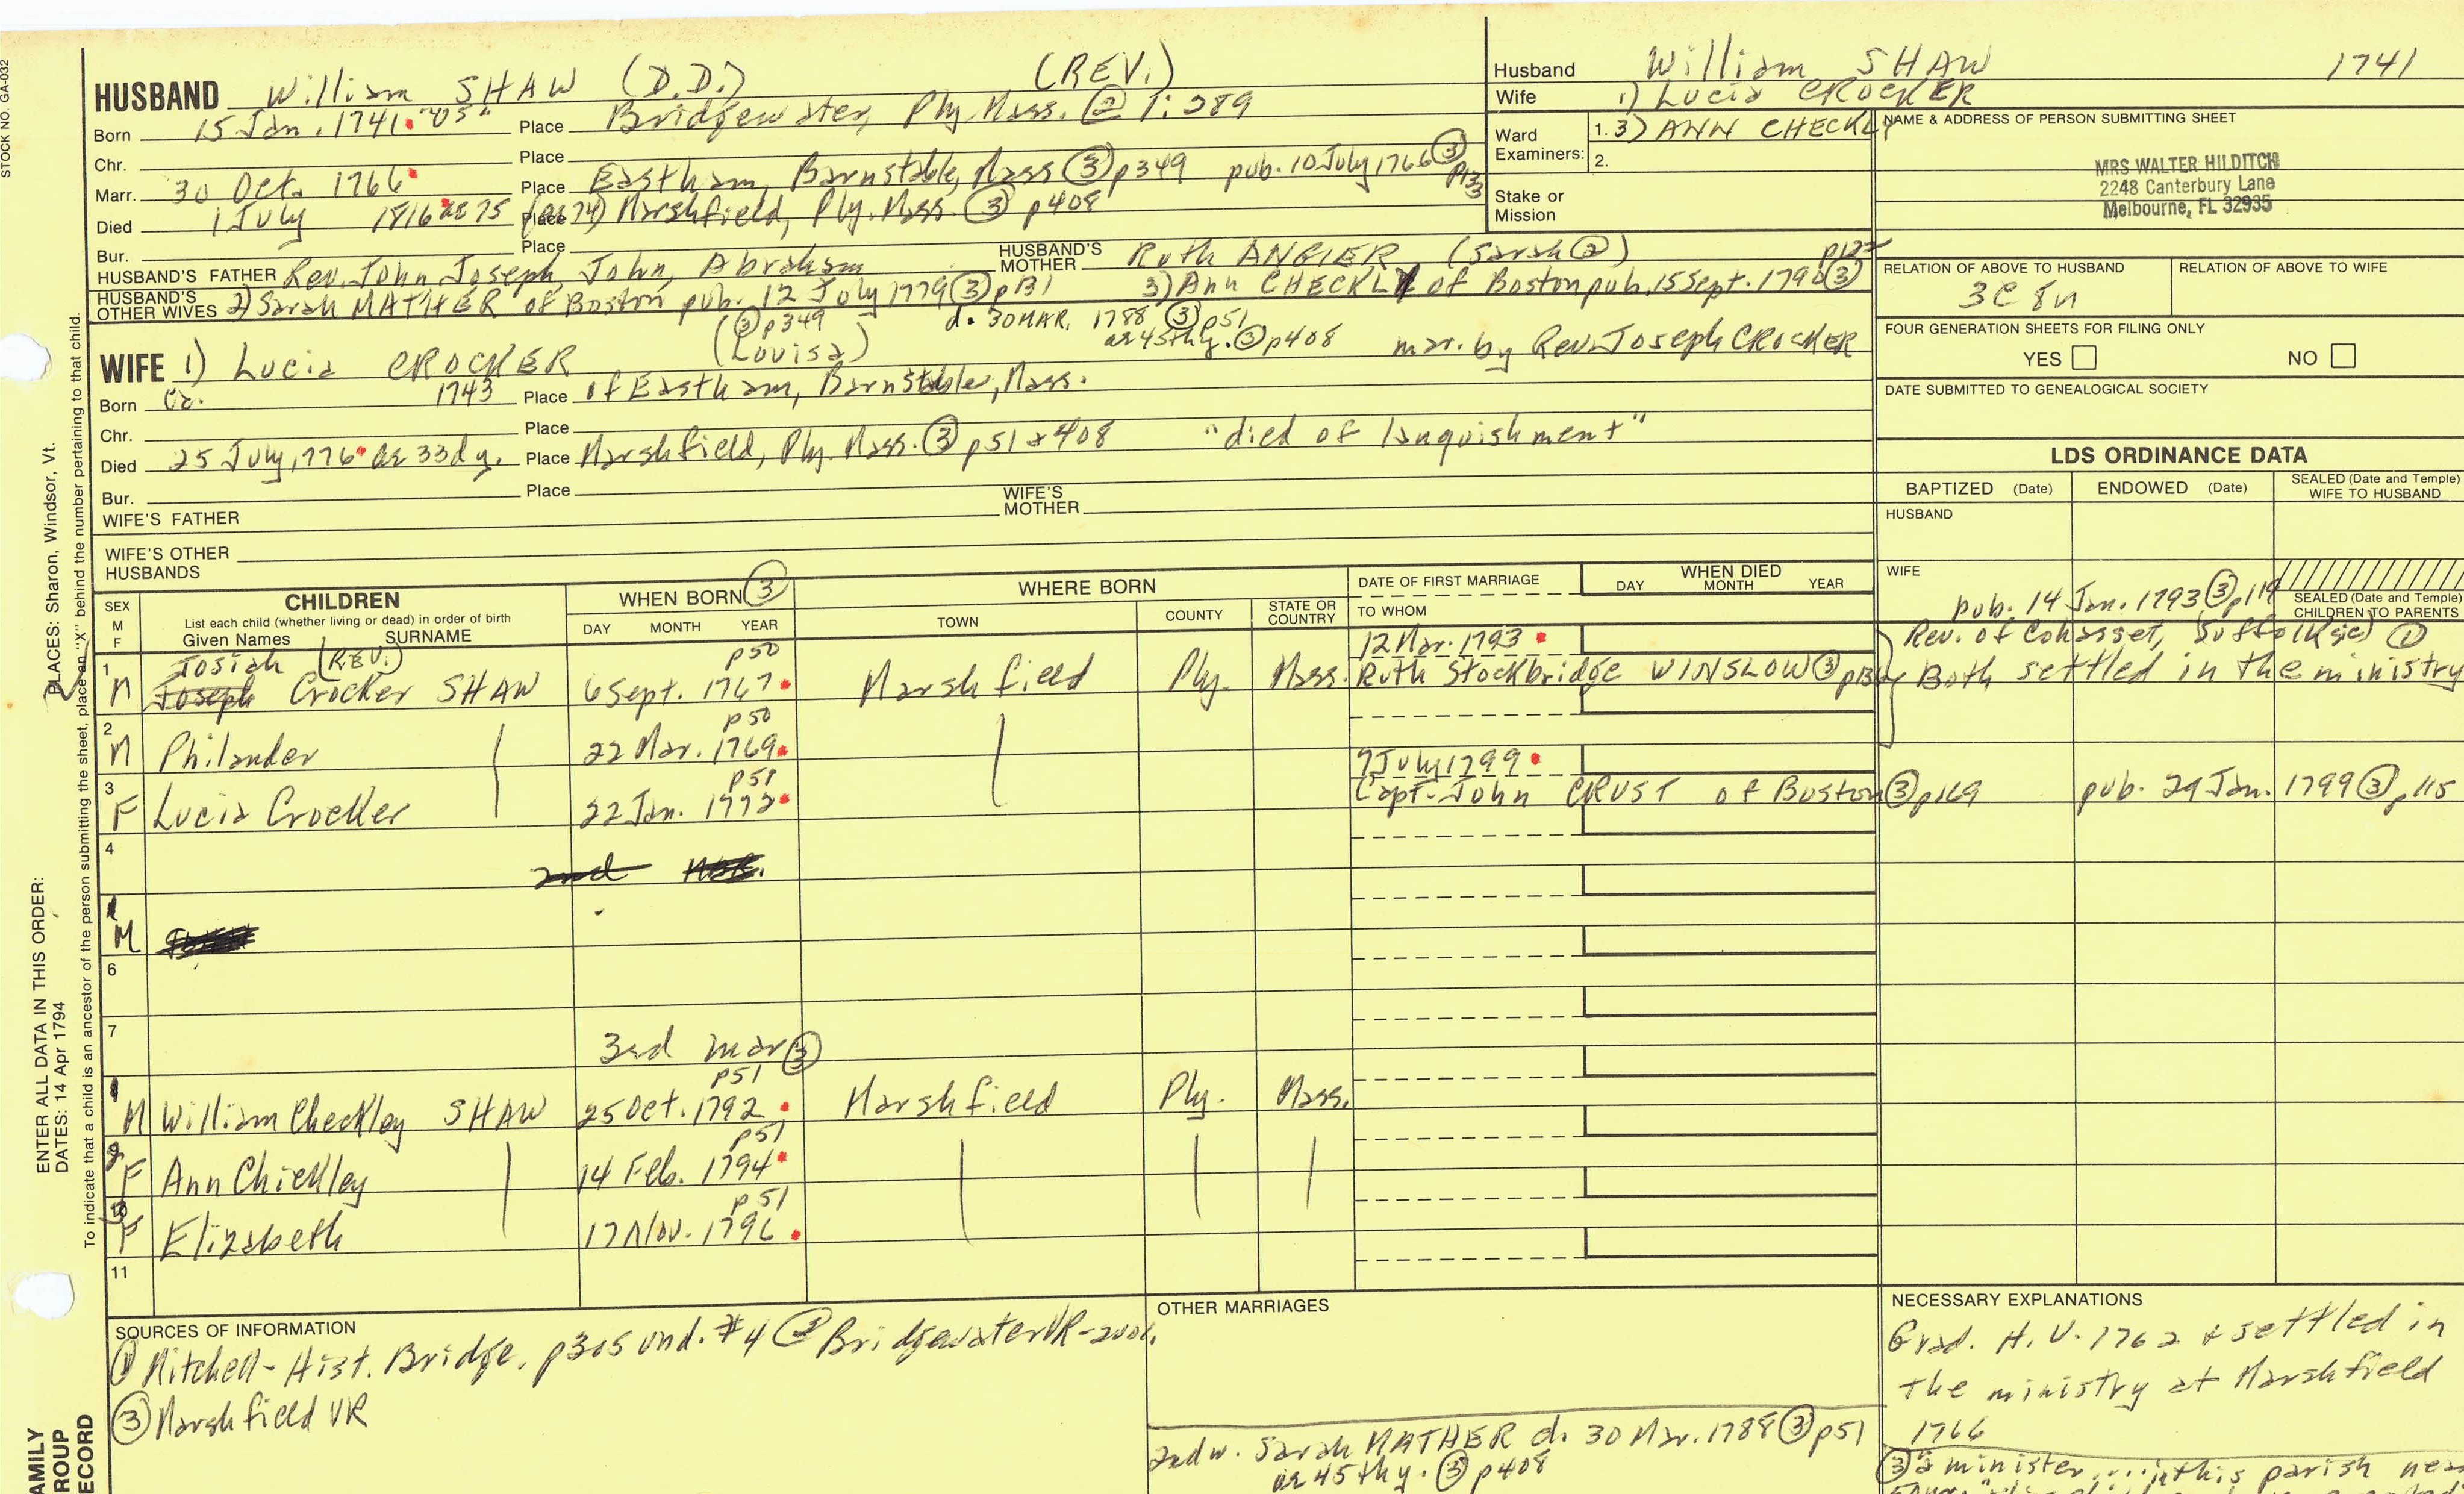 STOCK NO. GA-032
HUSBAND William SHAW (D.D.) (REV.)
Born 15 Jan. 1741. "O5" Place Bridgewater, Ply. Mass. ② 1:289
Chr. Place
Marr. 30 Oct. 1766 Place Eastham, Barnstable, Mass ③ p349 pub. 10 July 1766 ③ p133
Died 1 July 1816 ae 75 (ae 74) Place Marshfield, Ply. Mass. ③ p408
Bur. Place
HUSBAND'S FATHER Rev. John Joseph, John, Abraham HUSBAND'S MOTHER Ruth ANGIER (Sarah ②) p122
HUSBAND'S OTHER WIVES 2) Sarah MATHER of Boston pub. 12 July 1779 ③ p131 3) Ann CHECKLY of Boston pub. 15 Sept. 1790 ③
(③ p349 d. 30 MAR. 1788 ③ p51
WIFE 1) Lucia CROCKER (Louisa) ae 45thy. ③ p408 mar. by Rev. Joseph CROCKER
Born Ca. 1743 Place of Eastham, Barnstable, Mass.
Chr. Place
Died 25 July, 776 ae 33d y. Place Marshfield, Ply. Mass. ③ p51 + 408 "died of languishment"
Bur. Place
WIFE'S FATHER WIFE'S MOTHER
WIFE'S OTHER HUSBANDS
Husband William SHAW 1741
Wife 1) Lucia CROCKER
Ward Examiners: 1. 3) ANN CHECKLY
2.
Stake or Mission
NAME & ADDRESS OF PERSON SUBMITTING SHEET
MRS WALTER HILDITCH
2248 Canterbury Lane
Melbourne, FL 32935
RELATION OF ABOVE TO HUSBAND RELATION OF ABOVE TO WIFE
3C 8n
FOUR GENERATION SHEETS FOR FILING ONLY
YES NO
DATE SUBMITTED TO GENEALOGICAL SOCIETY
LDS ORDINANCE DATA
BAPTIZED (Date) ENDOWED (Date) SEALED (Date and Temple) WIFE TO HUSBAND
HUSBAND
WIFE
pub. 14 Jan. 1793 ③ p114
SEALED (Date and Temple) CHILDREN TO PARENTS
SEX M F CHILDREN WHEN BORN ③ WHERE BORN DATE OF FIRST MARRIAGE WHEN DIED
List each child (whether living or dead) in order of birth
Given Names SURNAME DAY MONTH YEAR TOWN COUNTY STATE OR COUNTRY TO WHOM DAY MONTH YEAR
Josiah (REV.) p50 12 Mar. 1793 Rev. of Cohasset, Suffolk (sic) ①
1 M Joseph Crocker SHAW 6 Sept. 1767 Marshfield Ply. Mass. Ruth Stockbridge WINSLOW ③ Both settled in the ministry
p50
2 M Philander 22 Mar. 1769
p51 7 July 1799
3 F Lucia Crocker 22 Jan. 1772 Capt. John CRUST of Boston ③ p169 pub. 29 Jan. 1799 ③ p115
4
2nd mar.
M
6
7
3rd mar ③
p51
8 M William Checkley SHAW 25 Oct. 1792 Marshfield Ply. Mass.
p51
9 F Ann Chickley 14 Feb. 1794
p51
10 F Elizabeth 17 Nov. 1796
11
SOURCES OF INFORMATION
① Mitchell - Hist. Bridge. p305 und. #4 ② Bridgewater VR-
③ Marshfield VR
OTHER MARRIAGES
2nd w. Sarah MATHER d. 30 Mar. 1788 ③ p51
ae 45thy. ③ p408
NECESSARY EXPLANATIONS
Grad. H. U. 1762 & settled in
the ministry at Marshfield
1766
③ "a minister ..... in this parish
ENTER ALL DATA IN THIS ORDER:
DATES: 14 Apr 1794
PLACES: Sharon, Windsor, Vt.
To indicate that a child is an ancestor of the person submitting the sheet, place an "X" behind the number pertaining to that child.
AMILY
ROUP
ECORD